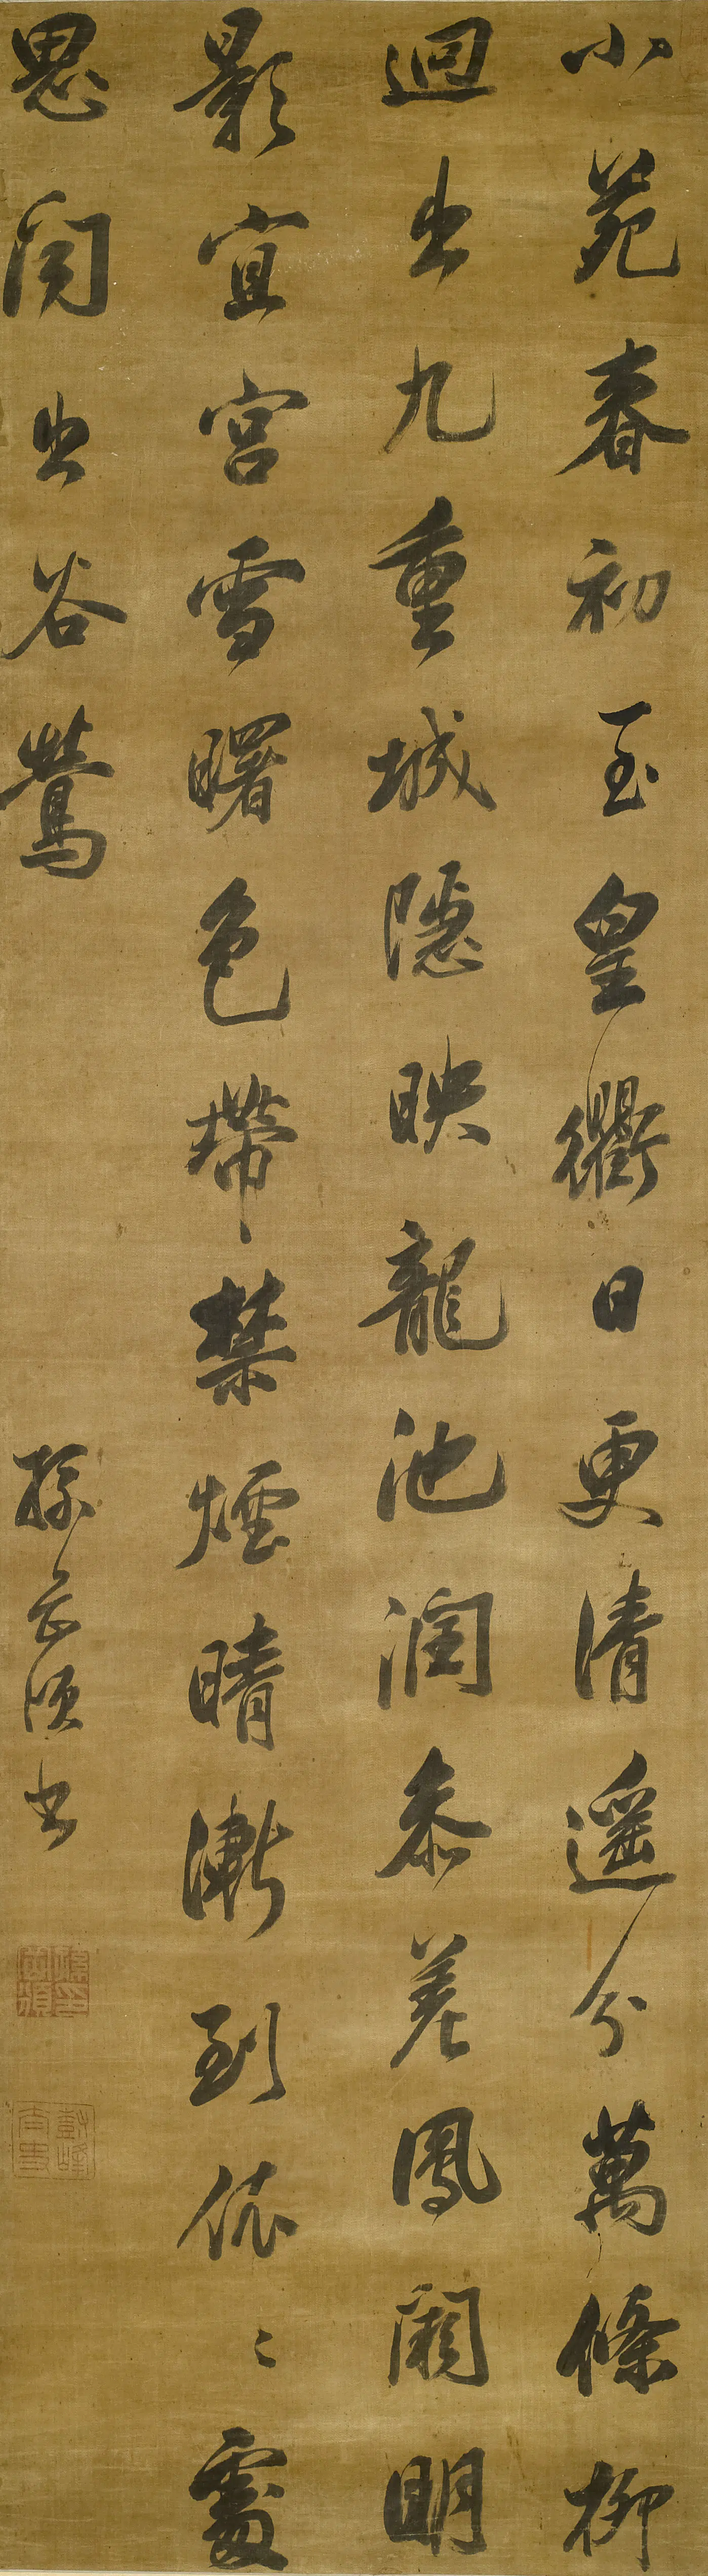 小苑春初至皇衢日更清遥分萬條柳
迥出九重城隱映龍池潤參差鳳闕明
影宜宮雪曙色帶禁煙晴漸到依〻處
思聞出谷鶯
孫岳頒書